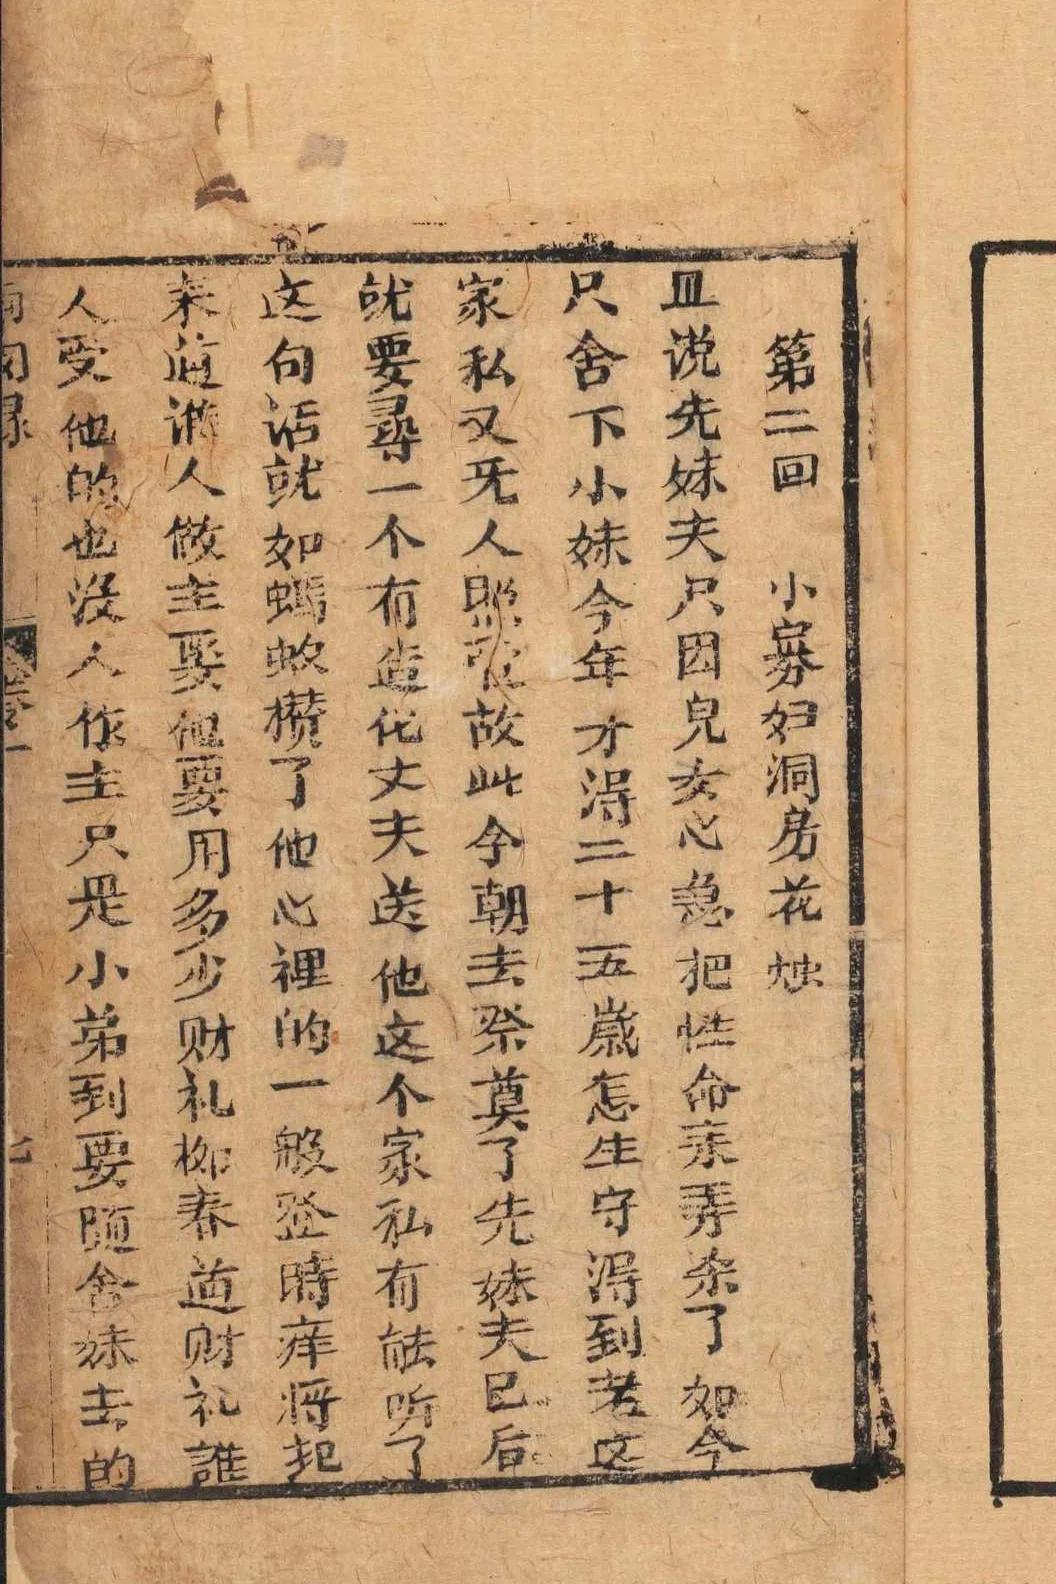 第二回　小寡妇洞房花烛
且说先妹夫只因兒女心急把性命来弄杀了如今
只舍下小妹今年才得二十五嵗怎生守得到老这
家私又无人照管故此今朝去祭奠了先妹夫已后
就要尋一个有造化丈夫送他这个家私有能听了
这句话就如蚂蚁攒了他心裡的一般登時痒将起
来道谁人做主娶他要用多少财礼柳春道财礼誰
人受他的也没人作主只是小弟到要随舍妹去的
卷一
七